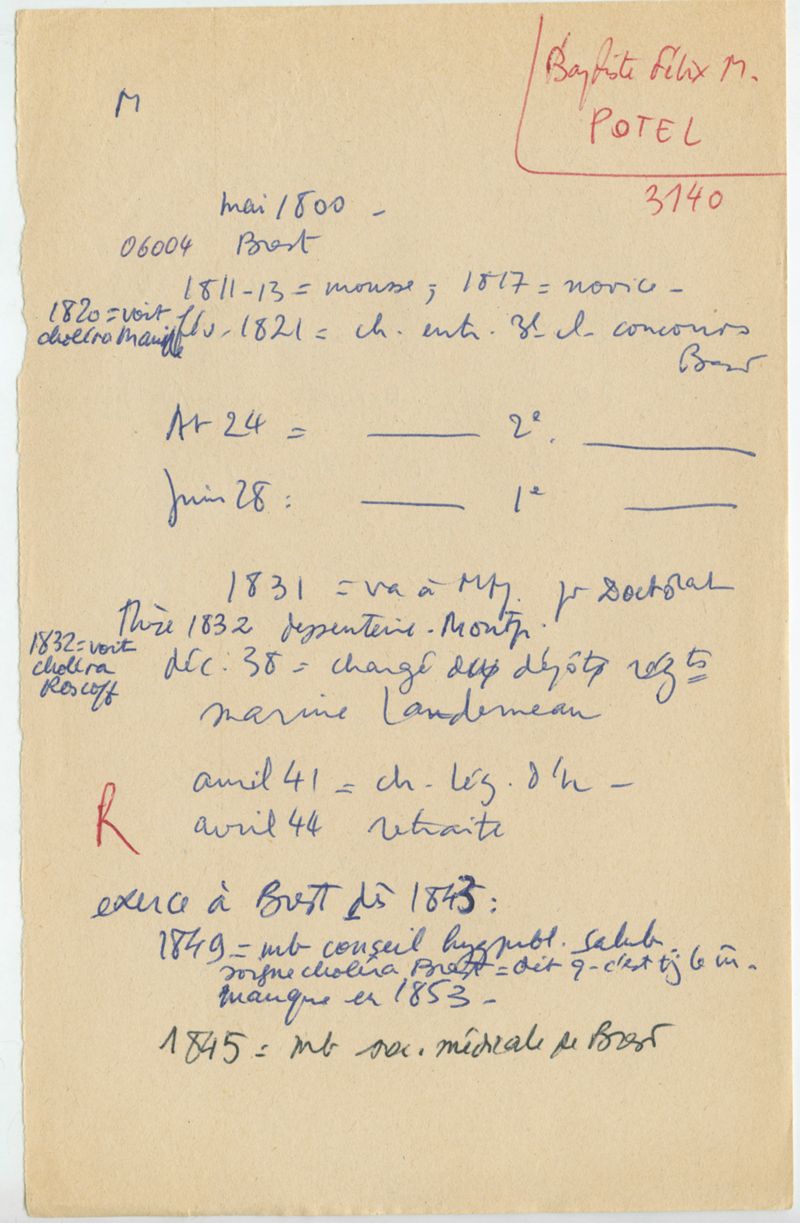 Baptiste Félix M.
POTEL
3140
M
mai 1800 -
06004 Brest
1811-13 = mousse ; 1817 = novice -
1820 = voit
choléra Manille
fév. 1821 = ch. entr. 3e cl. concours
Brest
At 24 = 2e.
Juin 28 : 1e
1831 = va à pr Doctorat
thèse 1832 dyssenterie - Montp.
1832 = voit
choléra
Roscoff
déc. 38 = chargé dépôt régts
marine Landerneau
avril 41 = ch. Lég. d'h -
R
avril 44 retraite
exerce à Brest dès 1843 :
1849 = mb conseil hyg publ. Salub.
soigne choléra Brest = dit q. c'est tj le m.
manque en 1853 -
1845 = mb soc. médicale de Brest